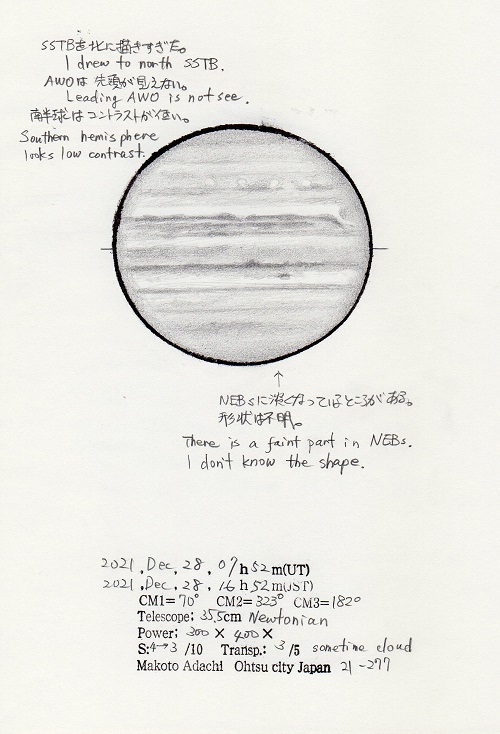 SSTBを北に描きすぎた。
I drew to north SSTB.
AWOは先頭が見えない。
Leading AWO is not see.
南半球はコントラストが低い。
Southern hemisphere
looks low contrast.
↑
NEBsに淡くなってるところがある。
形状は不明。
There is a faint part in NEBs.
I don't know the shape.
2021, Dec, 28, 07h52m(UT)
2021, Dec, 28, 16h52m(JST)
CM1=70° CM2=323° CM3=182°
Telescope: 35.5cm Newtonian
Power: 300× 400×
S:4→3 /10 Transp.: 3/5 sometime cloud
Makoto Adachi Ohtsu city Japan 21-277